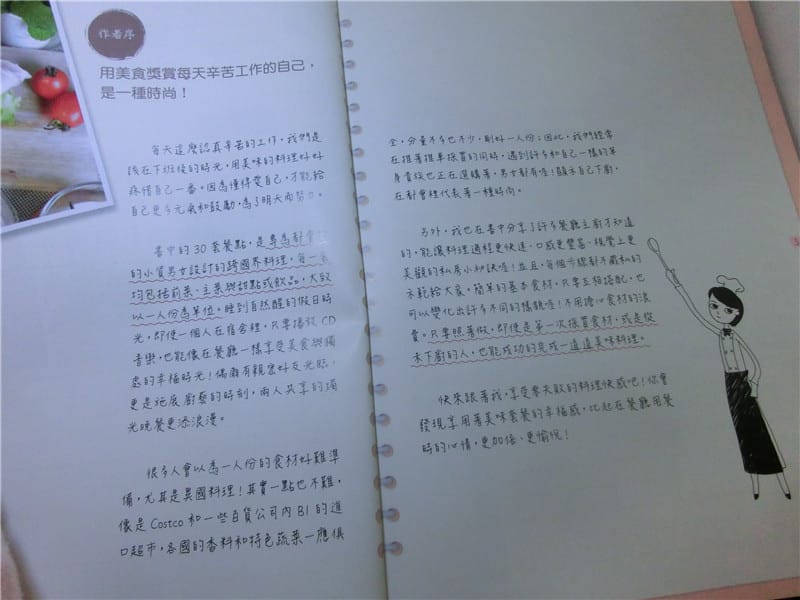 作者序
用美食獎賞每天辛苦工作的自己，
是一種時尚！
每天這麼認真辛苦的工作，我們是
該在下班後的時光，用美味的料理好好
疼惜自己一番。因為懂得愛自己，才能給
自己更多元氣和鼓勵，為了明天而努力。
書中的30套餐點，是專為都會
的小資男女設計的跨國界料理，每一
均包括前菜、主菜與甜點或飲品，大致
以一人份為單位。睡到自然醒的假日時
光，即使一個人在宿舍裡，只要播放CD
音樂，也能像在餐廳一樣享受美食與獨
處的幸福時光！偶爾有親密好友光臨，
更是施展廚藝的時刻，兩人共享的燭
光晚餐更添浪漫。
很多人會以為一人份的食材好難準
備，尤其是異國料理！其實一點也不難，
像是Costco和一些百貨公司內B1的進
口超市，各國的香料和特色蔬菜一應俱
全，分量不多也不少，剛好一人份；因此，我們經常
在推著推車採買的同時，遇到許多和自己一樣的單
身貴族也正在選購著，男女都有唷！顯示自己下廚，
在都會裡代表著一種時尚。
另外，我也在書中分享了許多餐廳主廚才知道
的，能讓料理過程更快速、口感更豐富、視覺上更
美觀的私房小秘訣喔！並且，每個步驟都不藏私的
示範給大家。簡單的基本食材，只要互相搭配，也
可以變化出許多不同的樣貌喔！不用擔心食材的浪
費。只要照著做，即使是第一次採買食材，或是從
未下廚的人，也能成功的完成一道道美味料理。
快來跟著我，享受零失敗的料理快感吧！你會
發現享用著美味套餐的幸福感，比起在餐廳用餐
時的心情，更加倍、更愉悅！